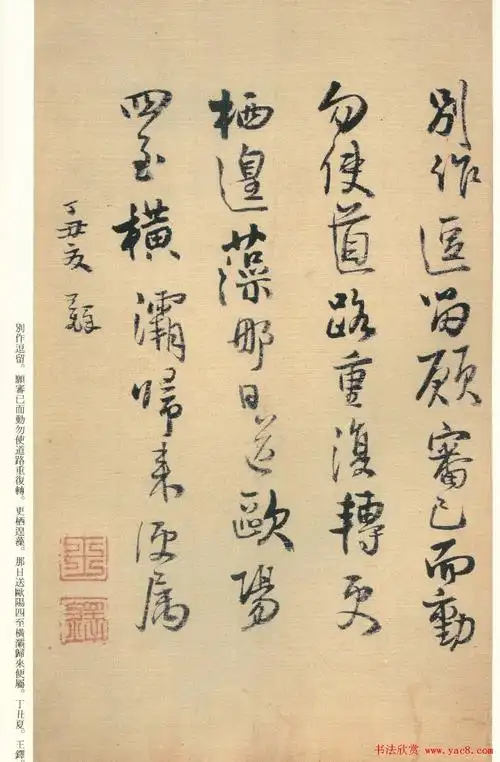 別作逗留願審己而動
勿使道路重復轉更
栖遑藻那日送歐陽
四至橫灞歸来便属
丁丑夏王鐸
王鐸
別作逗留。願審已而動勿使道路重復轉。更栖遑藻。那日送歐陽四至橫灞歸來便屬。丁丑夏。王鐸。
书法欣赏
www.yac8.com